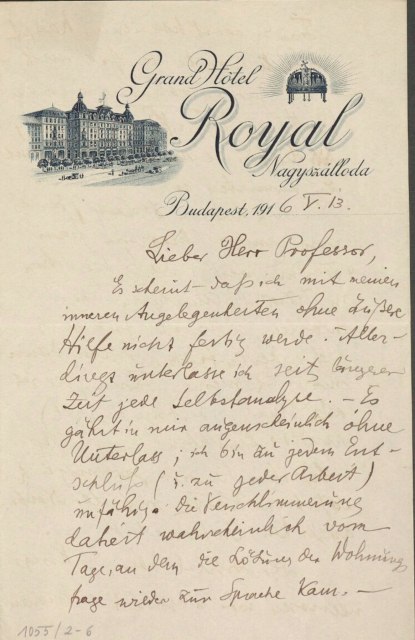 Grand Hôtel
Royal
Nagyszálloda
Budapest, 1916 V. 13.
Lieber Herr Professor,
Es scheint - daß ich mit meinen
inneren Angelegenheiten ohne äußere
Hilfe nicht fertig werde. - Aller-
dings unterlasse ich seit längerer
Zeit jede Selbstanalyse. - Es
gährt in mir augenscheinlich ohne
Unterlass; ich bin zu jedem Ent-
schluß (u. zu jeder Arbeit)
unfähig. Die Verschlimmerung
datiert wahrscheinlich vom
Tage, an dem die Lösung der Wohnungs
frage wieder zur Sprache kam. -
1055/2-6